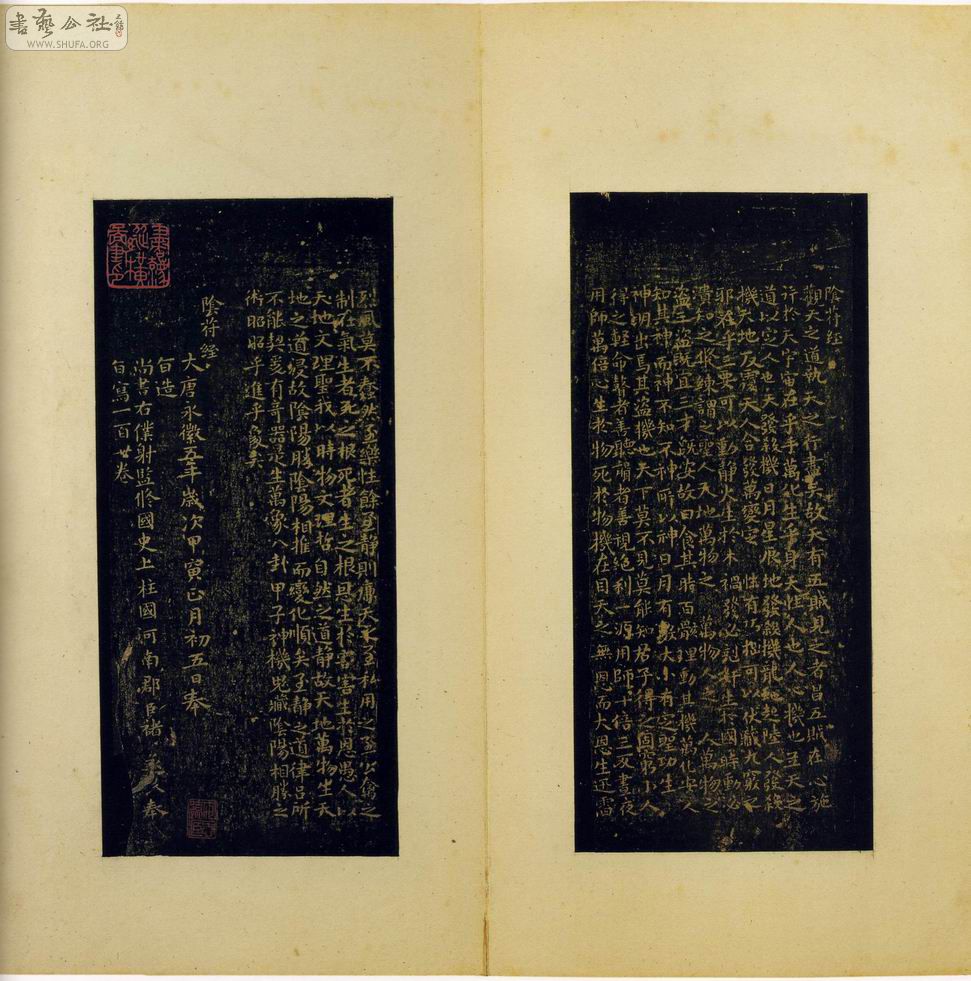 書藝公社
WWW.SHUFA.ORG
陰符經
觀天之道執天之行盡矣故天有五賊見之者昌五賊在心施
行於天宇宙在乎手萬化生乎身天性人也人心機也立天之
道以定人也天發殺機日月星辰地發殺機龍虵起陸人發殺
機天地反覆天人合發萬變定性有巧拙可以伏藏九竅之
邪在乎三要可以動靜火生於木禍發必剋奸生於國時動必
潰知之修鍊謂之聖人天地萬物之萬物人之人萬物之
盜三盜既宜三才既安故曰食其時百骸理動其機萬化安人
知其神而神不知不神所以神日月有數大小有定聖功生
神明出焉其盜機也天下莫不見莫能知君子得之固窮小人
得之輕命瞽者善聽聾者善視絕利一源用師十倍三反晝夜
用師萬倍心生於物死於物機在目天之無恩而大恩生迅雷
烈風莫不蠢然至樂性餘至靜則廉天之至私用之至公禽之
制在氣生者死之根死者生之根恩生於害害生於恩愚人以
天地文理聖我以時物文理哲自然之道靜故天地萬物生天
地之道浸故陰陽勝陰陽相推而變化順矣至靜之道律呂所
不能契爰有奇器是生萬象八卦甲子神機鬼藏陰陽相勝之
術昭昭乎進乎象矣
陰符經
大唐永徽五年歲次甲寅正月初五日奉
旨造
尚書右僕射監修國史上柱國河南郡臣褚遂良奉
旨寫一百廿卷